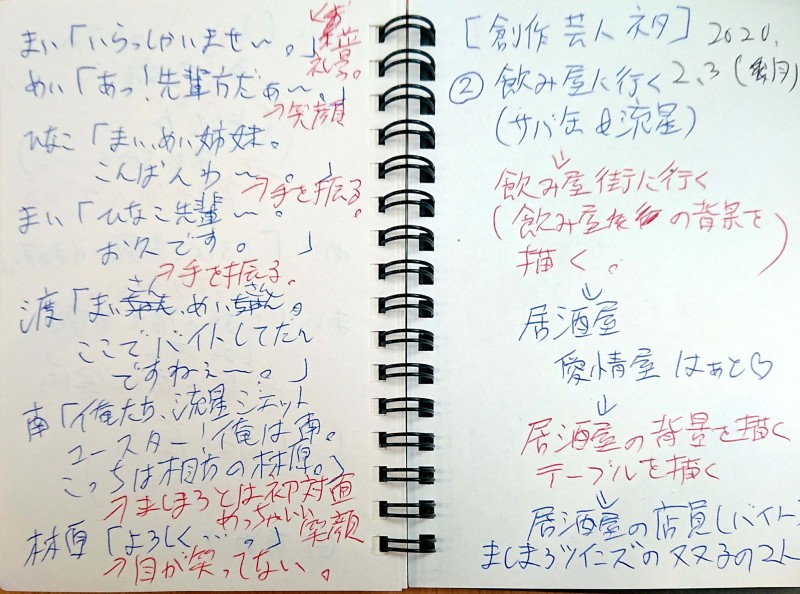 [創作芸人ネタ] 2020.
② 飲み屋に行く 2.3(月)
(サバ缶&流星)
↓
飲み屋街に行く
(飲み屋 の背景を
描く。)
↓
居酒屋
愛情屋 はぁと♡
↓
居酒屋の背景を描く
テーブルを描く
↓
居酒屋の店員(バイト
ましまろツインズの双子のコント
まい「いらっしゃいませ〜。」
お
めい「あっ!先輩方だぁ〜。」
→笑顔
ひなこ「まい、めい姉妹。
こんばんわ〜。」
→手を振る
まい「ひなこ先輩〜。
お久です。」
→手を振る。
渡「まいさん、めいさん。
ここでバイトしてたん
ですねぇ〜。」
南「俺たち、流星ジェット
コースター!俺は南。
こっちは相方の林原。」
→ましまろとは初対面
めっちゃいい笑顔
林原「よろしく…。」
→目が笑ってない。